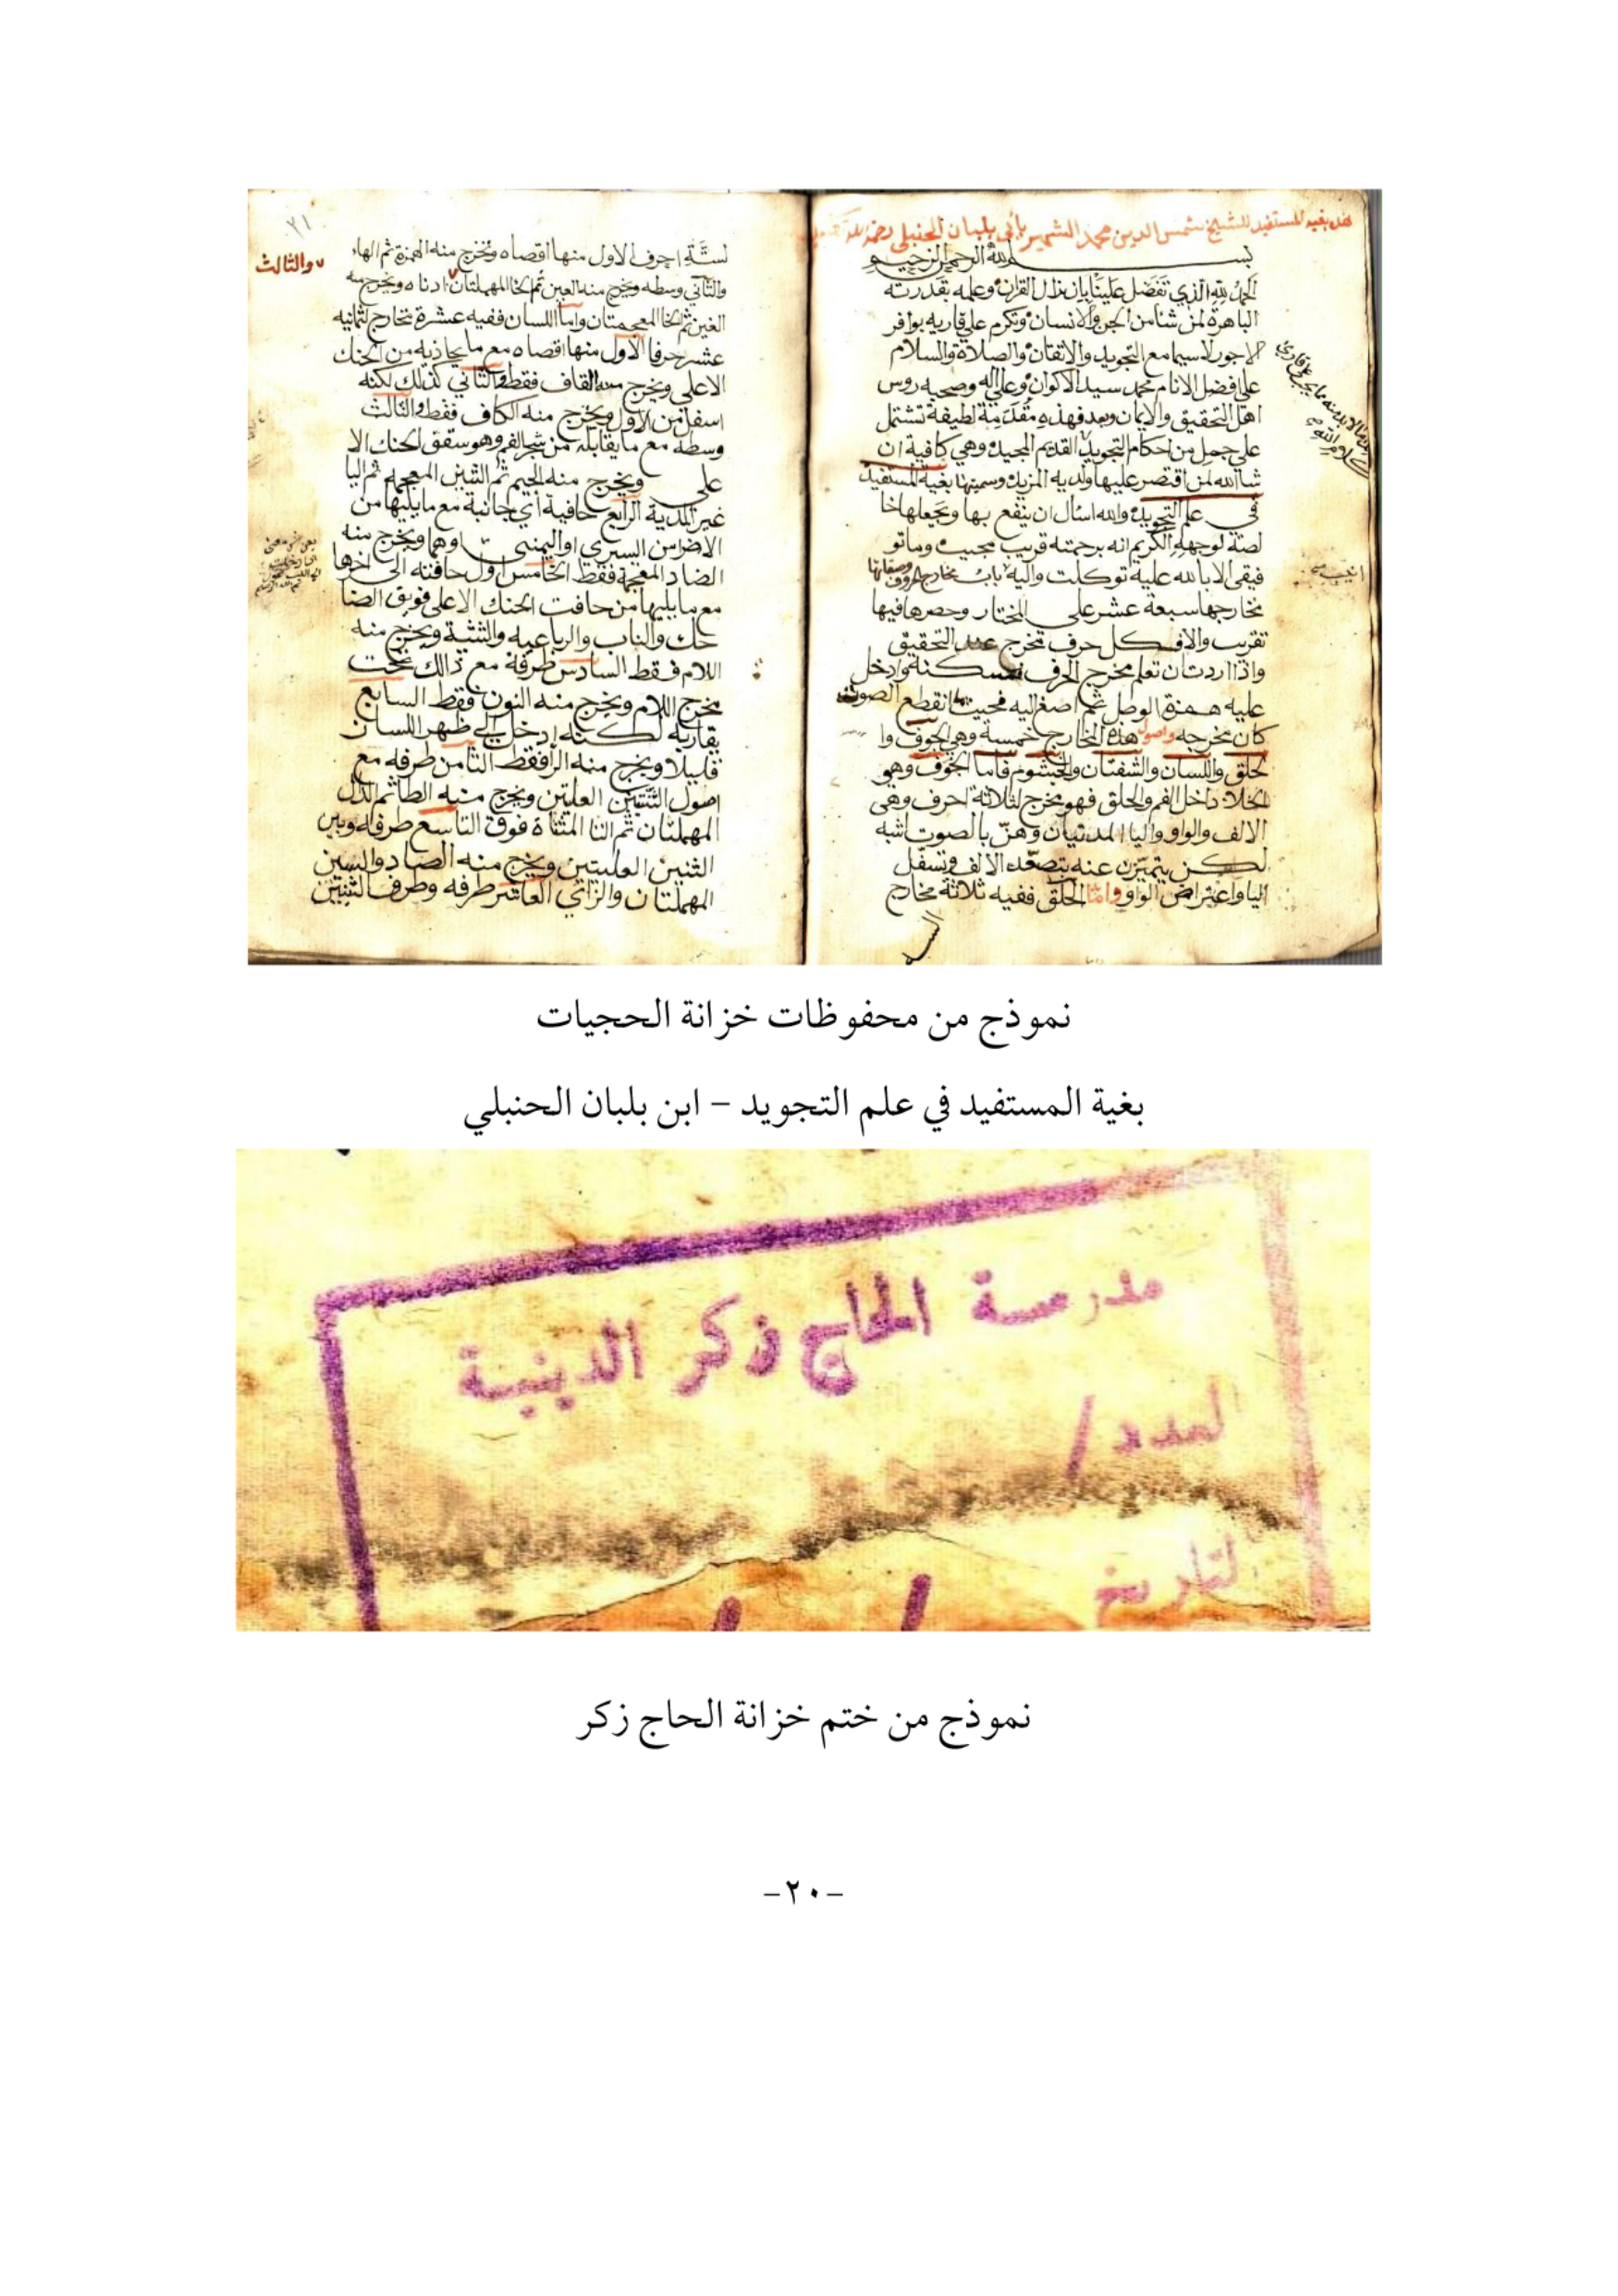 هذه بغية المستفيد للشيخ شمس الدين محمد الشهير بأبي بلبان الحنبلي رضي الله
بسم الله الرحمن الرحيم
الحمد لله الذي تفضل علينا بانزال القران وعلمه بقدرته
الباهرة لمن شا من الجن والانسان وتكرم على قاريه بوافر
الاجور لاسيما مع التجويد والاتقان والصلاة والسلام
على افضل الانام محمد سيد الاكوان وعلى اله وصحبه روس
اهل التحقيق والايمان وبعد فهذه مقدمة لطيفة تشتمل
على جمل من احكام التجويد القديم المجيد وهي كافية ان
شا الله لمن اقتصر عليها ولديه المزيد وسميتها بغية المستفيد
في علم التجويد والله اسال ان ينفع بها ويجعلها خا
لصة لوجهه الكريم انه برحمته قريب مجيب وما تو
فيقي الا بالله عليه توكلت واليه باب مخارج الحروف وصفاتها
مخارجها سبعة عشر على المختار وحصرها فيها
تقريب والا فكل حرف مخرج عند التحقيق
واذا اردت ان تعلم مخرج الحرف فسكنه وادخل
عليه همزة الوصل ثم اصغ اليه فحيث انقطع الصوت
كان مخرجه واصول هذه المخارج خمسة وهي الجوف وا
لحلق واللسان والشفتان والخيشوم فاما الجوف وهو
الخلا داخل الفم والحلق فهو مخرج لثلاثة احرف وهي
الالف والواو واليا المدتيان وهن بالصوت اشبه
لكن يتميزن عنه بتصعد الالف وتسفل
اليا واعتراض الواو واما الحلق ففيه ثلاثة مخارج
لستة
٢١
لستة احرف الاول منها اقصاه ويخرج منه الهمزة ثم الهاء
والثاني وسطه ويخرج منه العين ثم الحا المهملتان ادناه ويخرج منه
والثالث
الغين ثم الخا المعجمتان واما اللسان ففيه عشرة مخارج لثمانيه
عشر حرفا الاول منها اقصاه مع ما يحاذيه من الحنك
الاعلى ويخرج منه القاف فقط والثاني كذلك لكنه
اسفل من الاول ويخرج منه الكاف فقط والثالث
وسطه مع ما يقابله من شجر الفم وهو سقف الحنك الا
على ويخرج منه الجيم ثم الشين المعجمة ثم اليا
غير المدية الرابع حافية اي جانبة مع ما يليها من
الاضراس اليسرى او اليمنى اوهما ويخرج منه
الضاد المعجمة فقط الخامس اول حافته الى اخرها
مع ما يليها من حافت الحنك الاعلى فويق الضا
حك والناب والرباعيه والثنية ويخرج منه
اللام فقط السادس طرفة مع ذالك تحت
مخرج اللام ويخرج منه النون فقط السابع
يقاربه لكنه ادخل الى ظهر اللسان
قليلا ويخرج منه الرا فقط الثامن طرفه مع
اصول الثنتين العليتين ويخرج منه الطا ثم الدل
المهملتان ثم التا المثناة فوق التاسع طرفه وبين
الثنين العليتين ويخرج منه الصاد والسين
المهملتان والزاي العاشر طرفه وطرف الثنيتين
نموذج من محفوظات خزانة الحجيات
بغية المستفيد في علم التجويد – ابن بلبان الحنبلي
مدرسة الحاج زكر الدينية
العدد /
التاريخ / /
نموذج من ختم خزانة الحاج زكر
-٢٠-